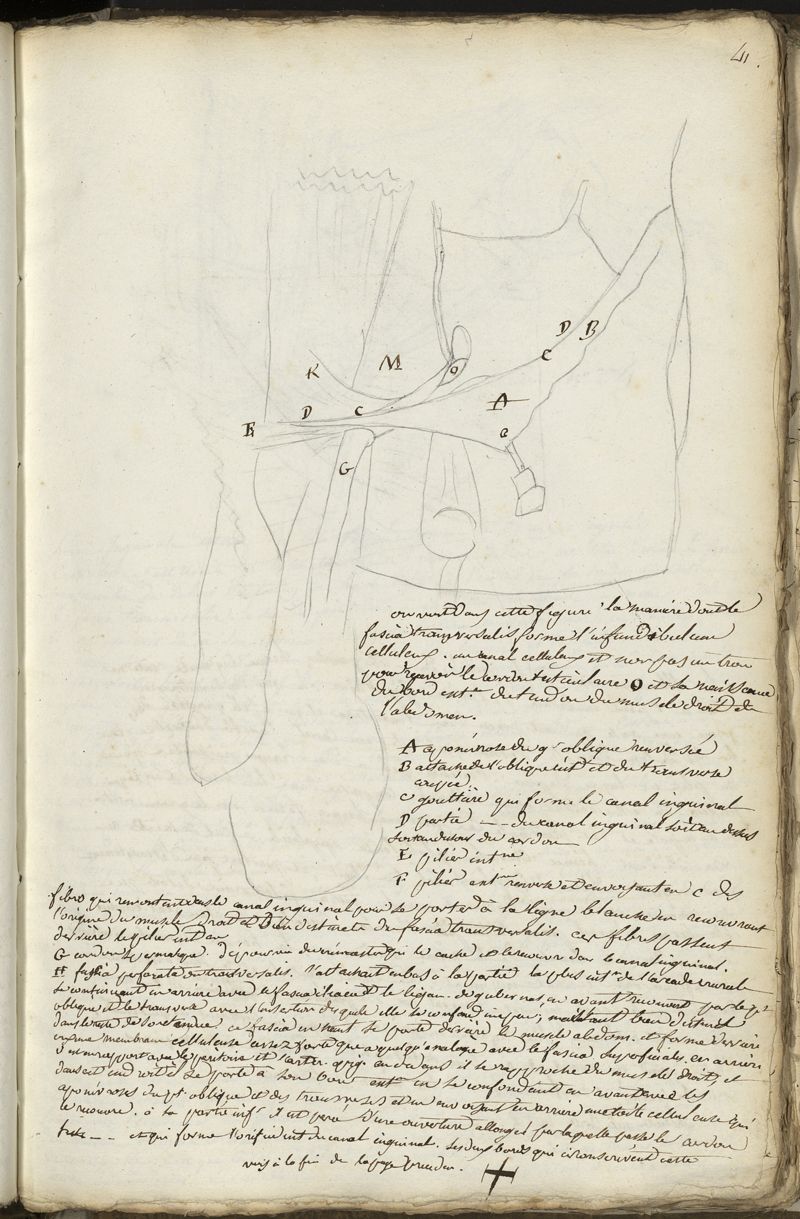 41.
K
M
O
D B
C
D
C
A
E
G
on voit dans cette figure la manière dont le
fascia transversalis forme l'infundibulum
celluleux. un canal celluleux et non pas un trou
pour recevoir le cordon testiculaire O et sa naissance
du bord ext.re du tendon du muscle droit de
l'abdomen.
A aponévrose du g.d oblique renversée
B attache de l'oblique int. et du transverse
coupée.
C gouttière qui forme le canal inguinal
D partie du canal inguinal soit au dessus
soit au dessous du cordon
E pilier int.ne
F pilier ext.ne renversé et envoyant en C des
fibres qui remontent dans le canal inguinal pour se porter à la ligne blanche en recouvrant
l'origine du muscle droit et bien distincte du fascia transversalis. ces fibres passent
derrière le pilier int.
G cordon spermatique dépourvu du crémaster qui le cache et le recouvre dans le canal inguinal.
H fascia transversalis. l'attachant en bas à la partie la plus int.e de l'arcade crurale
se continuant en arrière avec le fascia iliaca et le ligam. de gubernat, en avant recouvert par le p.t
oblique et le transverse avec l'insertion desquels elle se confond un peu; mais bien distinct
dans le reste de son étendue ce fascia en haut se porte derrière le muscle abdom. et forme derrière
une membrane celluleuse assez forte qui a quelqu'analogie avec le fascia superficialis. en arrière
il est en rapport avec le péritoine et l'artèr. épig. en dedans il se rapproche du muscle droit, et
dans cet endroit se porte à son bord ext. en se confondant en avant avec les
aponévroses du p.t oblique et des transverses et en envoyant en arrière une toile celluleuse qui
le recouvre. à sa partie inf.e il est percé d'une ouverture allongée par laquelle passe le cordon
et qui forme l'orifice int. du canal inguinal. les deux bords qui circonscrivent cette
voir à la fin de la page